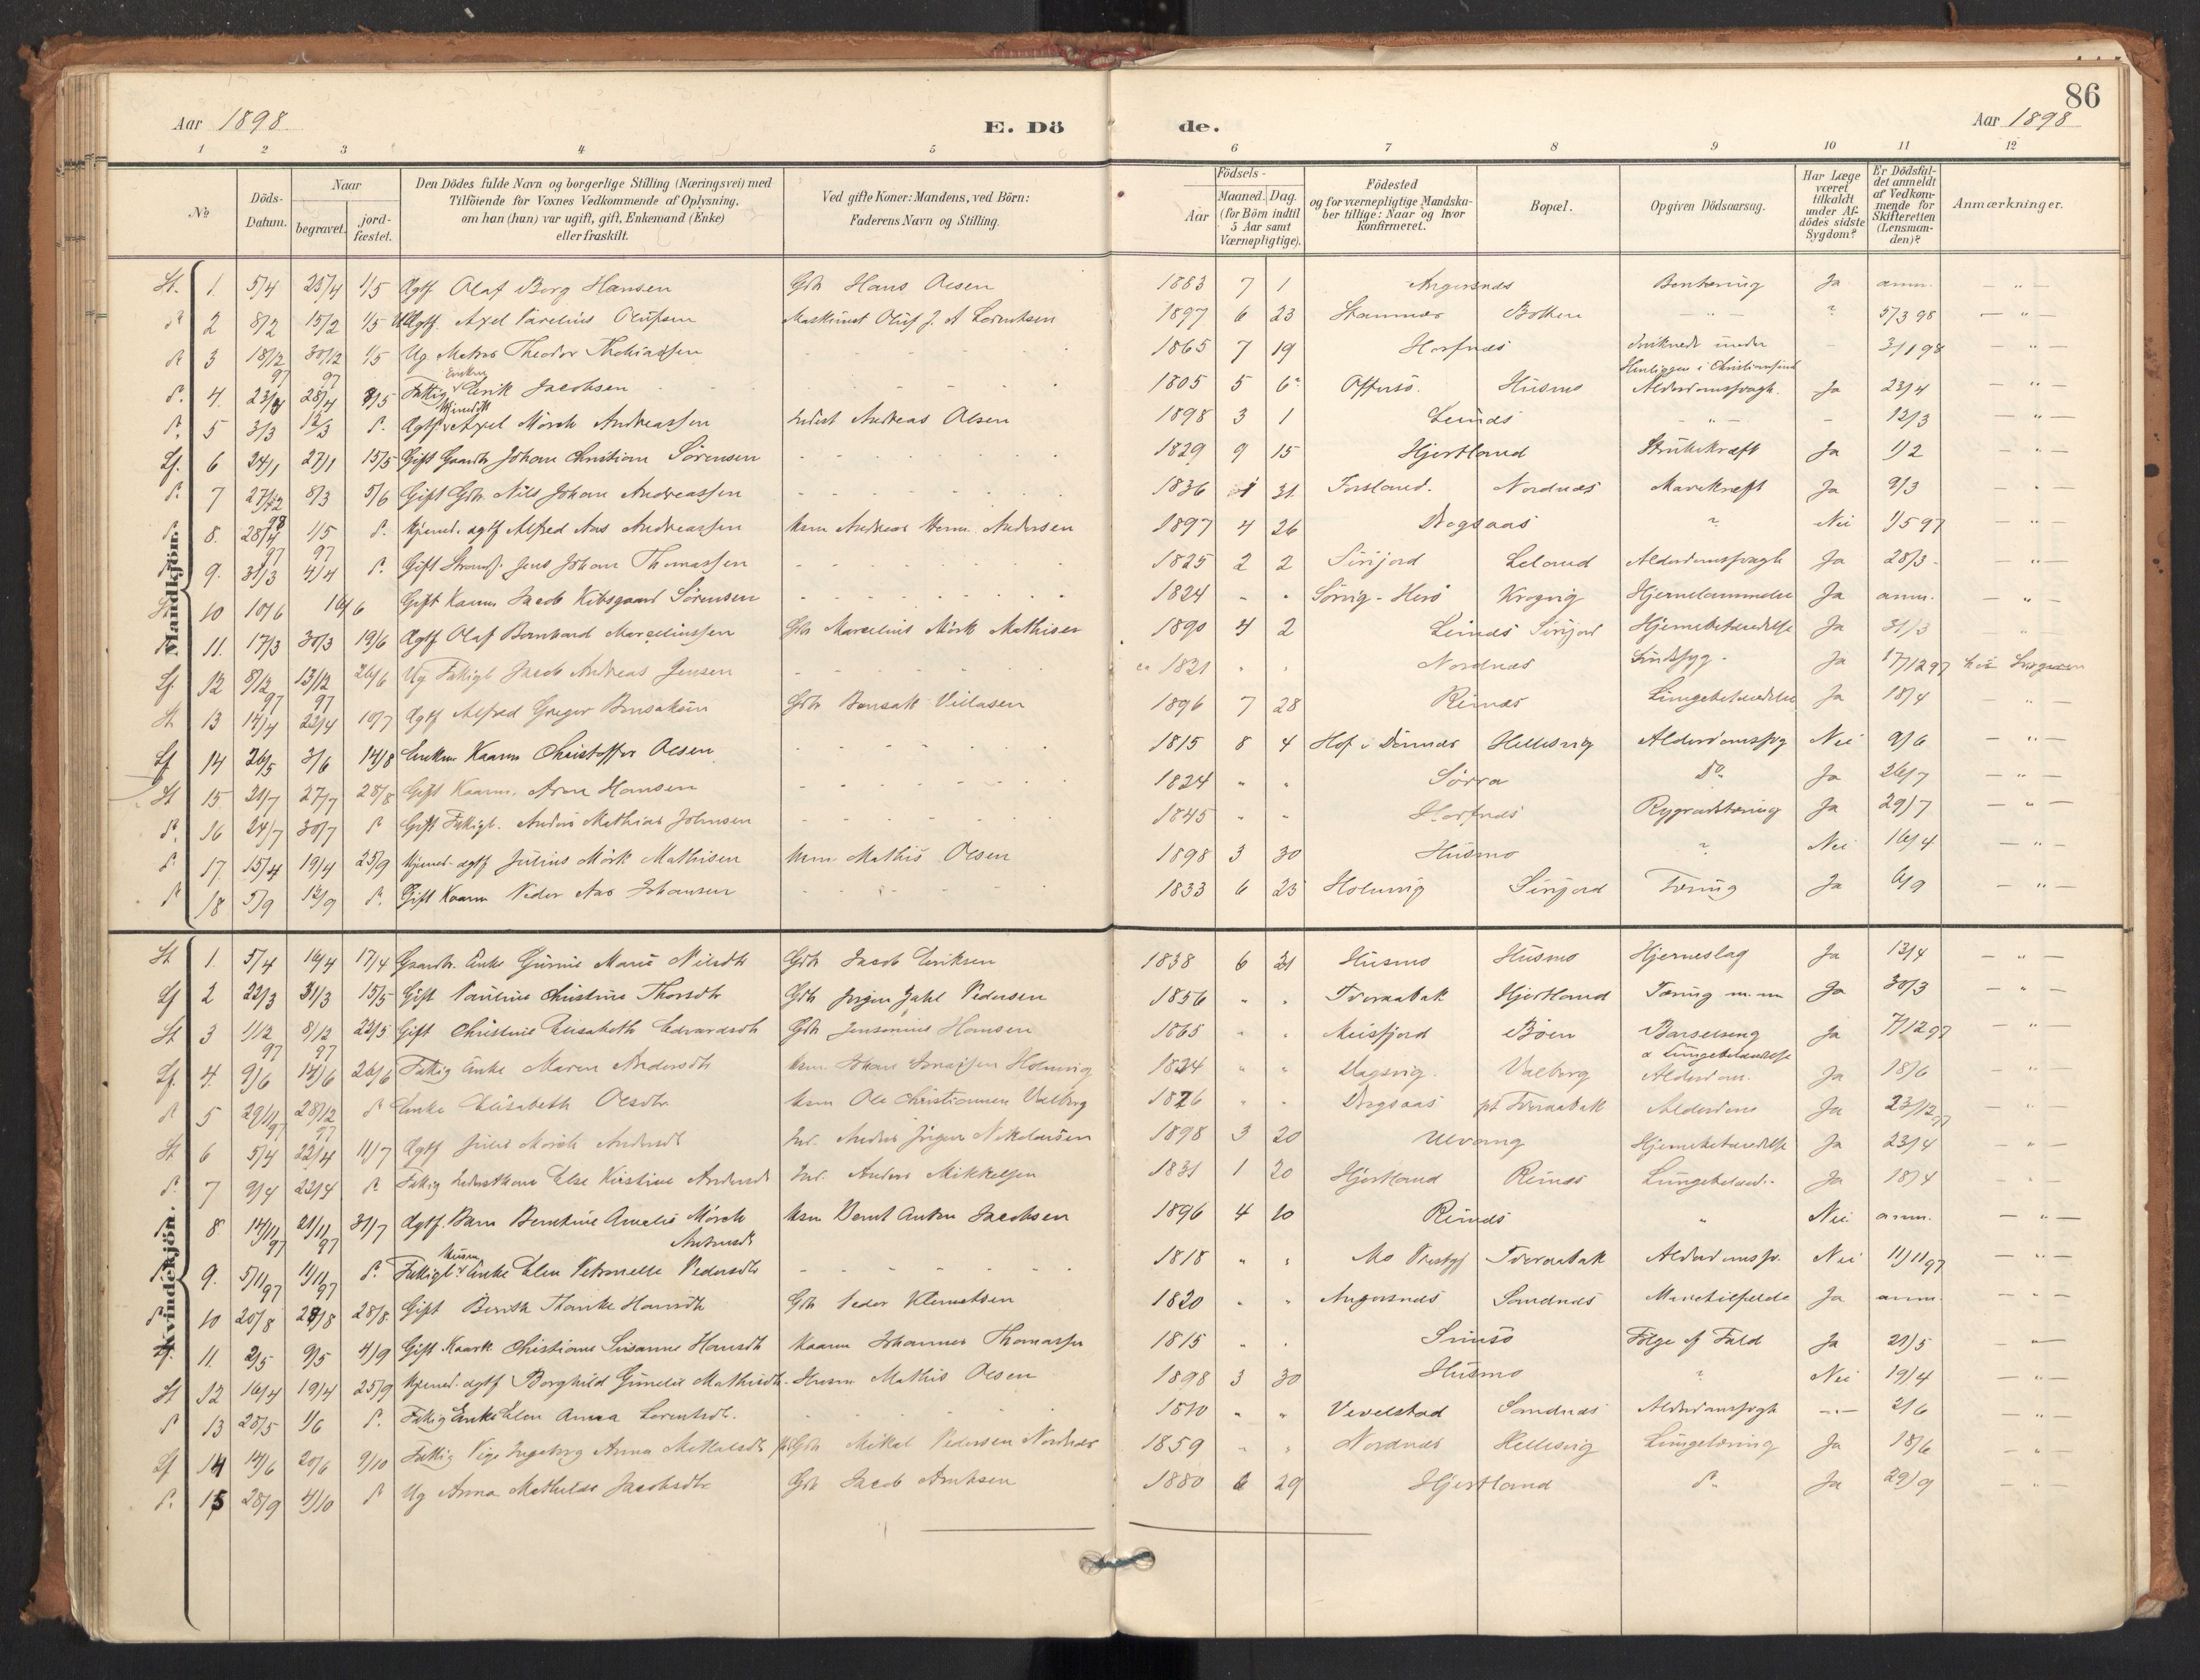 86
Aar 1898. E. Dö de. Aar 1898
1 2 3 4 5 6 7 8 9 10 11 12
№
Döds-
Datum.
Naar
begravet.
jord-
fæstet.
Den Dödes fulde Navn og borgerlige Stilling (Næringsvei) med
Tilföiende for Voxnes Vedkommende af Oplysning,
om han (hun) var ugift, gift, Enkemand (Enke)
eller fraskilt.
Ved gifte Koner: Mandens, ved Börn:
Faderens Navn og Stilling.
Födsels-
Aar
Maaned. Dag.
(for Börn indtil
5 Aar samt
Værnepligtige).
Födested
og for værnepligtige Mandska-
ber tillige: Naar og hvor
konfirmeret.
Bopæl.
Opgiven Dödsaarsag.
Har Læge
været
tilkaldt
under Af-
dödes sidste
Sygdom?
Er Dödsfal-
det anmeldt
af Vedkom-
mende for
Skifteretten
(Lensman-
den)?
Anmærkninger.
Mandkjön.
St. 1. 5/4 25/4 1/5 Ægtf Olaf Borg Hansen Gdr Hans Olsen 1883 7 1 Angersnæs Bentæring Ja anm. — " —
2 8/2 15/2 1/5 Axel Parelius Olufsen Maskinist Oluf J. A Lorentsen 1897 6 23 Stamnæs Botten " ? 5/3 98 — " —
3 18/12 97 30/12 97 1/5 Ug Theodor 1865 7 19 Hosfnæs under — 3/1 98 — " —
4. 23/4 28/4 8/5 Fattig Enkm Erik Jacobsen 1805 5 6? Offersö. Husmo Alderdomssvagh. Ja 23/4 — " —
5 3/3 12/3 d. Ægtf Axel Mörch Andreassen Inderst Andreas Olsen 1898 3 1 Leinæs " — 12/3 — " —
Lf. 6 24/1 27/1 15/5 Gift Gaardbr Johan Christian Sörensen 1829 9 15 Hjertland Strubekræft Ja 1/2 — " —
7 27/12 8/3 5/6 Gift Gdr. Nils Johan Andreassen 1836 1 31 Forsland. Nordnæs Mavekræft Ja 9/3 — " —
8. 28/4 97 1/5 97 d. Hjemd. ægtf Alfred Aas Andreassen Hsm Andreas Herm. Andersen 1897 4 26 Dagsaas ? Nei 1/5 97 — " —
9. 31/3 4/4 d. Gift Jens Johan Thomassen 1825 2 2 Sinjord Leland Alderdomssvagh Ja 28/3 — " —
10 10/6 16/6 Gift Kaarm Jacob Kibsgaard Sörensen 1824 " " Sörvig - Herö Krogvig Hjernelammelse Ja anm. — " —
11. 17/3 30/3 19/6 Ægtf Olaf Bernhard Marceliussen Gdr Marcelius Mörk Mathisen 1890 4 2 Leinæs Sinjord Hjernebetændelse Ja 31/3 — " —
Lf 12 8/12 97 13/12 97 26/6 Ug Fattigl Jacob Andreas Jensen ca 1821 " " Nordnæs Sindssyg. Ja 17/12 97
St 13 14/4 23/4 10/7 Ægtf Alfred Greger Bensaksen Gdr Bensak Villasen 1896 7 28 Reinæs Lungebetændelse Ja 18/4 " —
Lf 14 26/5 3/6 14/8 Enkm Kaarm Christoffer Olsen 1815 8 4 Hof i Dönnæs Hellesvig Alderdomssvg Nei 9/6 — " —
St 15 21/7 27/7 28/8 Gift Kaarm. Arne Hansen 1824 " " Sörra Do Ja 26/7 — " —
16 24/7 30/7 d Gift Fattigl. Anders Mathias Johnsen 1845 " " Hosfnæs Rygradstæring Ja 29/7 — " —
17. 15/4 19/4 25/9 Hjemd. ægtf Julius Mörk Mathisen Hsm Mathis Olsen 1898 3 30 Husmo ? Nei 16/4 — " —
18 5/9 12/9 d. Gift Kaarm Peder Aas Johansen 1833 6 25 Holmvig Sinjord Tæring Ja 6/9 — " —
Kvindekjön.
St 1. 5/4 16/4 17/4 Gaardbr. Enke Gurine Marie Nilsdtr Gdr Jacob Eriksen 1838 6 21 Husmo Husmo Hjerneslag Ja 13/4 — " —
Lf 2 22/3 31/3 15/5 Gift Pauline Christine Thorsdtr Gdr Jörgen Jakl Pedersen 1856 " " Tveraabak Hjertland Tæring m. m Ja 30/3 — " —
St 3 1/12 97 8/12 97 22/5 Gift Christine Elisabeth Edvardsdtr Gdr Jensenius Hansen 1865 " " Meisfjord Böen Barselseng & Lungebetændelse Ja 7/12 97 — "
Lf. 4. 9/6 14/6 26/6 Fattig Enke Maren Andersdtr Hsm Johan Holmvig 1824 " " Dagsvig. Valberg Alderdom. Ja 18/6 "
5 29/11 97 28/12 97 d Enke Elisabeth Olsdtr Hsm Ole Christiansen Valberg 1826 " " Dagsaas pt Tveraabak Alderdom Ja 23/12 97 " —
St 6 5/4 22/4 11/7 Ægtf Julie Mörch Andersdt Ind. Anders Jörgen Nikolaisen 1898 3 20 Ulvang Hjernebetændelse Ja 23/4 " —
7 9/4 22/4 d. Fattig Inderstkone Else Kirstine Andersdt Ind. Anders Mikkelsen 1831 1 20 Hjertland Reinæs Lungebetænd. Ja 18/4 " —
8. 14/11 97 21/11 97 31/7 Ægtf. Barn Berntine Amelie Mörch Antonsdt Hsm Bernt Anton Jacobsen 1896 4 10 Reinæs " Nei anm. — " —
9. 5/11 97 11/11 97 d. Fattigl Enke Elen Petronelle Pedersdtr 1818 " " Mo Tveraabak Alderdomssv. Nei 11/11 97 — " —
10 20/8 28/8 28/8 Gift Hansdtr Gdr Peder Klemetsen 1820 " " Angersnæs Sandnæs Mavetilfælde Ja anm. — " —
11. 2/5 9/5 4/9 Gift Kaark Christiane Susanne Hansdtr Kaarm Johannes Thomassen 1815 " " Sninsö Fölge af Fald Ja 21/5 — " —
St 12 16/4 19/4 25/9 Hjemd. ægtf Borghild Gunelie Mathisdtr Husm Mathis Olsen 1898 3 30 Husmo ? Nei 19/4 — " —
13 28/5 1/6 d. Fattig Enke Elen Anna Lorentsdt. 1810 " " Vevelstad Sandnæs Alderdomssvagh — 2/6 — " —
Lf 14 14/6 20/6 9/10 Fattig Pige Ingeborg Anna Mikkalsdtr Gdr Mikal Pedersen Nordnæs 1859 " " Nordnæs Hellesvig Lungetæring Ja 18/6 " —
15 28/9 4/10 d Ug Anna Mathilde Jacobsdtr Gdr Jacob Arntsen 1880 6 29 Hjertland d. Ja 29/9 — " —